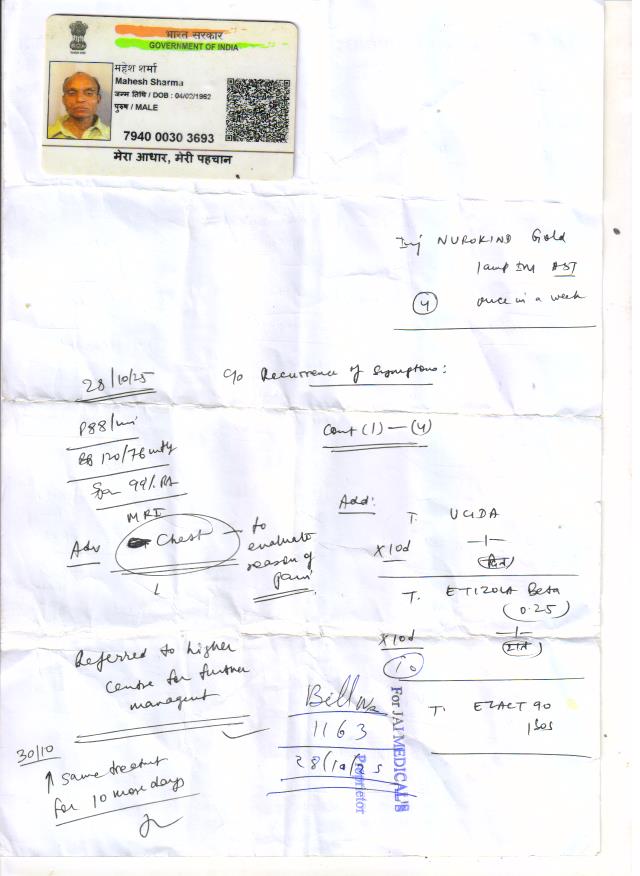 भारत सरकार
GOVERNMENT OF INDIA
महेश शर्मा
Mahesh Sharma
जन्म तिथि / DOB : 04/02/1962
पुरुष / MALE
7940 0030 3693
मेरा आधार, मेरी पहचान
Inj NUROKIND Gold
1amp IM AST
(4) once in a week
28/10/25
c/o Recurrence of Symptoms:
P88/min
BP 120/76
99%
Cont (1) — (4)
Add:
T. UCIDA
-1-
x10d
MRI
Adv Chest — to evaluate reason of pain
T. ETIZOLA Beta
(0.25)
-1-
x10d
10
T. EZACT 90
1 SOS
Referred to higher
centre for further
managent
Bill No
1163
28/10/25
For JAI MEDICAL'S
Proprietor
30/10
↑ Same treatmt
for 10 more days